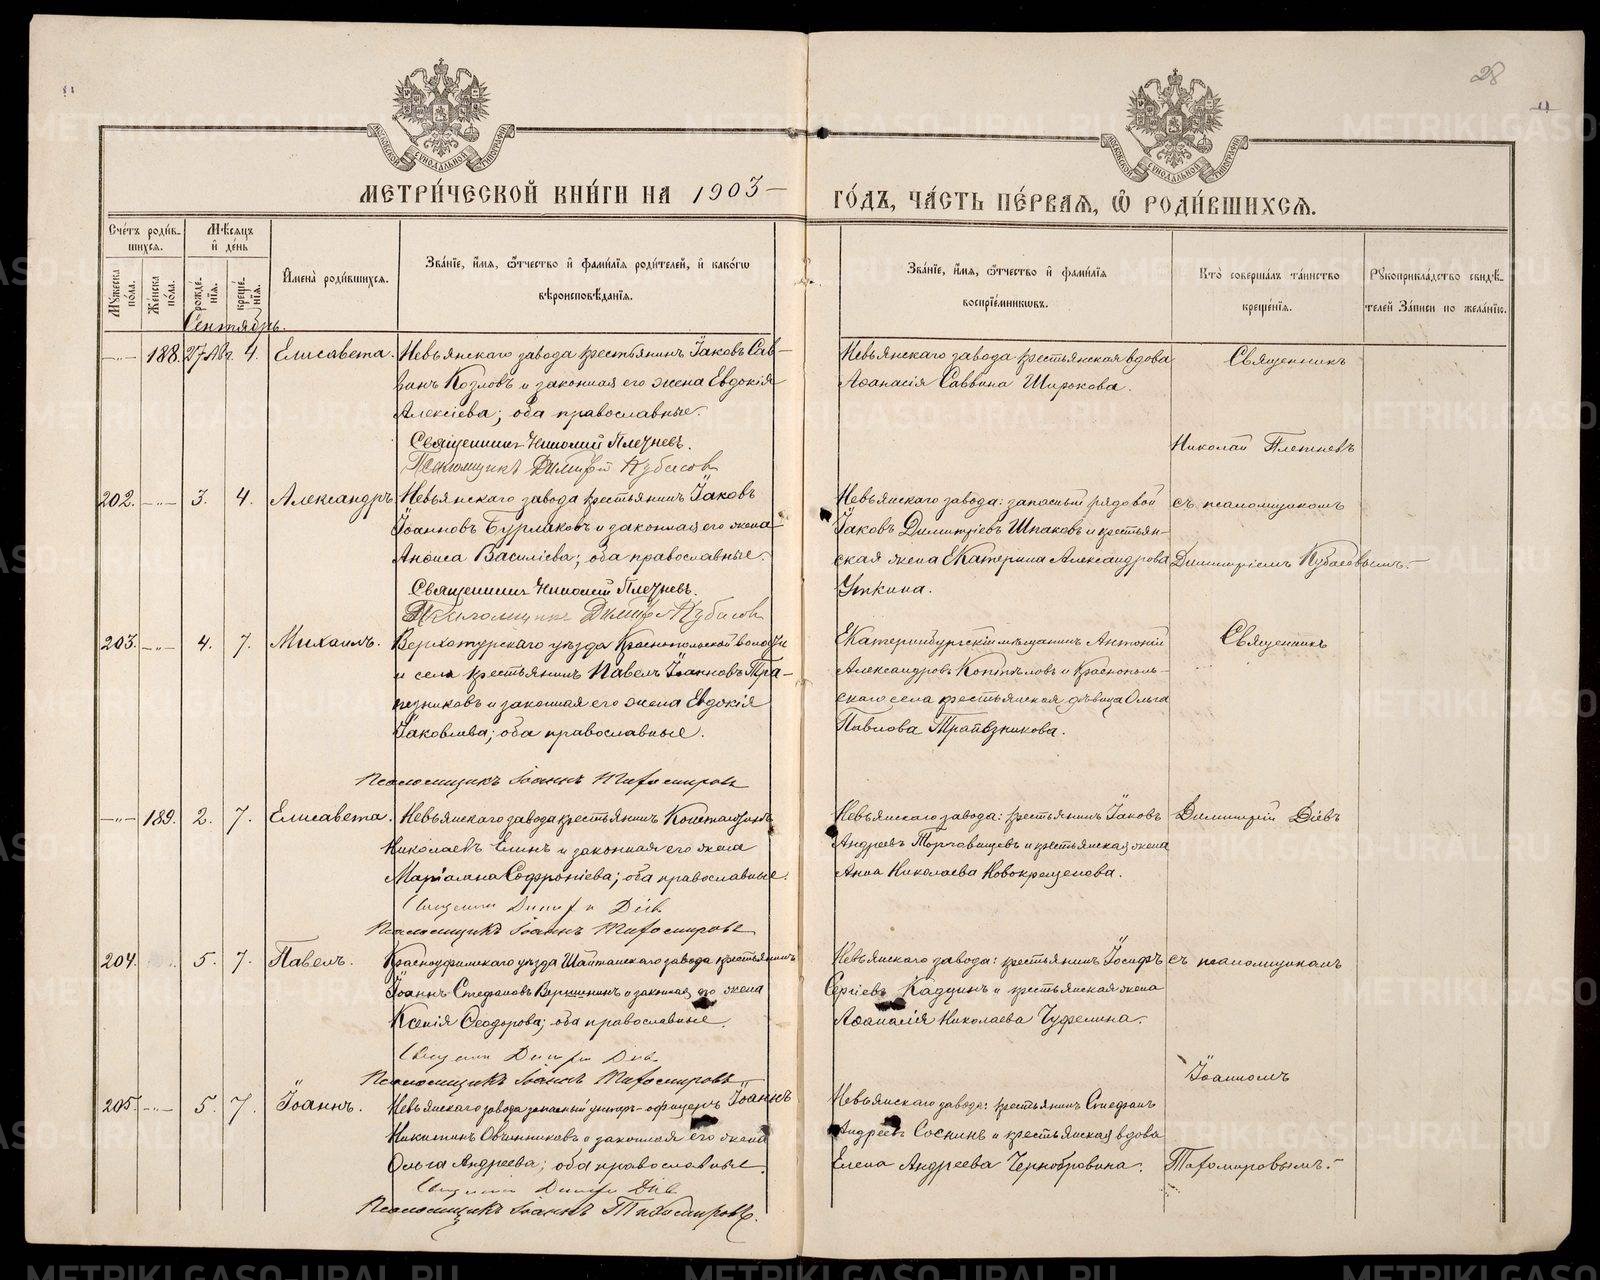 28
МЕТРИ́ЧЕСКОЙ КНИ́ГИ НА 1903 –
ГО́ДЪ, ЧА́СТЬ ПЕ́РВАЯ, Ѿ РОДИ́ВШИХСЯ.
МОСКОВСКОЙ СѴНОДАЛЬНОЙ ТИПОГРАФІИ
МОСКОВСКОЙ СѴНОДАЛЬНОЙ ТИПОГРАФІИ
Сче́тъ роди́в-
шихся.
Мѣ́сяцъ
и҆ де́нь
Мꙋ́жеска по́ла.
Же́нска по́ла.
рожде́-
нїя.
креще́-
нїя.
И҆мена̀ роди́вшихся.
Зва́нїе, и҆́мя, ѻ҆́тчество и҆ фами́лїя роди́телей, и҆ како́гѡ
вѣроисповѣ́данїя.
Зва́нїе, и҆́мя, ѻ҆́тчество и҆ фами́лїя
воспрїе́мникѡвъ.
Кто̀ соверша́лъ та́инство
креще́нїя.
Рꙋкоприкла́дство свидѣ́-
телей за́писи по жела́нїю.
Сентябрь.
–„– 188. 27 Авг. 4. Елисавета.
Невьянскаго завода крестьянинъ Іаковъ Сав-
винъ Козловъ и законная его жена Евдокія
Алексіева; оба православные.
Священникъ Николай Плетневъ.
Псаломщикъ Димитрій Кубасов
Невьянскаго завода крестьянская вдова
Аѳанасія Саввина Широкова.
Священникъ
Николай Плетневъ
202. –„– 3. 4. Александръ
Невьянскаго завода крестьянинъ Іаковъ
Іоанновъ Бурлаковъ и законная его жена
Анѳиса Василіева; оба православные.
Священникъ Николай Плетневъ.
Псаломщикъ Димитрій Кубасов
Невьянскаго завода: запасный рядовой
Іаковъ Димитріевъ Шпаковъ и крестьян-
ская жена Екатерина Александрова
Уткина.
съ псаломщикомъ
Димитріемъ Кубасовымъ. –
203. –„– 4. 7. Михаилъ.
Верхотурскаго уѣзда Краснопольской волости
и села крестьянинъ Павелъ Іоанновъ Тра-
пезниковъ и законная его жена Евдокія
Іаковлева; оба православные.
Псаломщикъ Іоаннъ Тихомировъ
Екатеринбургскій мѣщанинъ Антоній
Александровъ Коптѣловъ и Краснополь-
скаго села крестьянская дѣвица Ольга
Павлова Трапезникова.
Священникъ
–„– 189. 2. 7. Елисавета.
Невьянскаго завода крестьянинъ Константинъ
Николаевъ Елинъ и законная его жена
Маріамна Софроніева; оба православные.
Священникъ Димитрій Діев
Псаломщикъ Іоаннъ Тихомировъ
Невьянскаго завода: крестьянинъ Іаковъ
Андреевъ Торговищевъ и крестьянская жена
Анна Николаева Новокрещенова.
Димитрій Діевъ
204. 5. 7. Павелъ.
Красноуфимскаго уѣзда Шайтанскаго завода крестьянинъ
Іоаннъ Стефановъ Вершининъ и законная его жена
Ксенія Ѳеодорова; оба православные.
Священникъ Димитрій Діев
Псаломщикъ Іоаннъ Тихомировъ
Невьянскаго завода: крестьянинъ Іосифъ
Сергіевъ и крестьянская жена
Аѳанасія Николаева Чуфелина.
съ псаломщикомъ
Іоанномъ
205. –„– 5. 7. Іоаннъ.
Невьянскаго завода запасный унтеръ-офицеръ Іоаннъ
Никитинъ Овчинниковъ и законная его жена
Ольга Андреева; оба православные.
Священникъ Димитрій Діев
Псаломщикъ Іоаннъ Тихомировъ.
Невьянскаго завода: крестьянинъ Стефанъ
Андреевъ Соснинъ и крестьянская вдова
Елена Андреева Чернобровина.
Тихомировымъ. –
METRIKI.GASO-URAL.RU